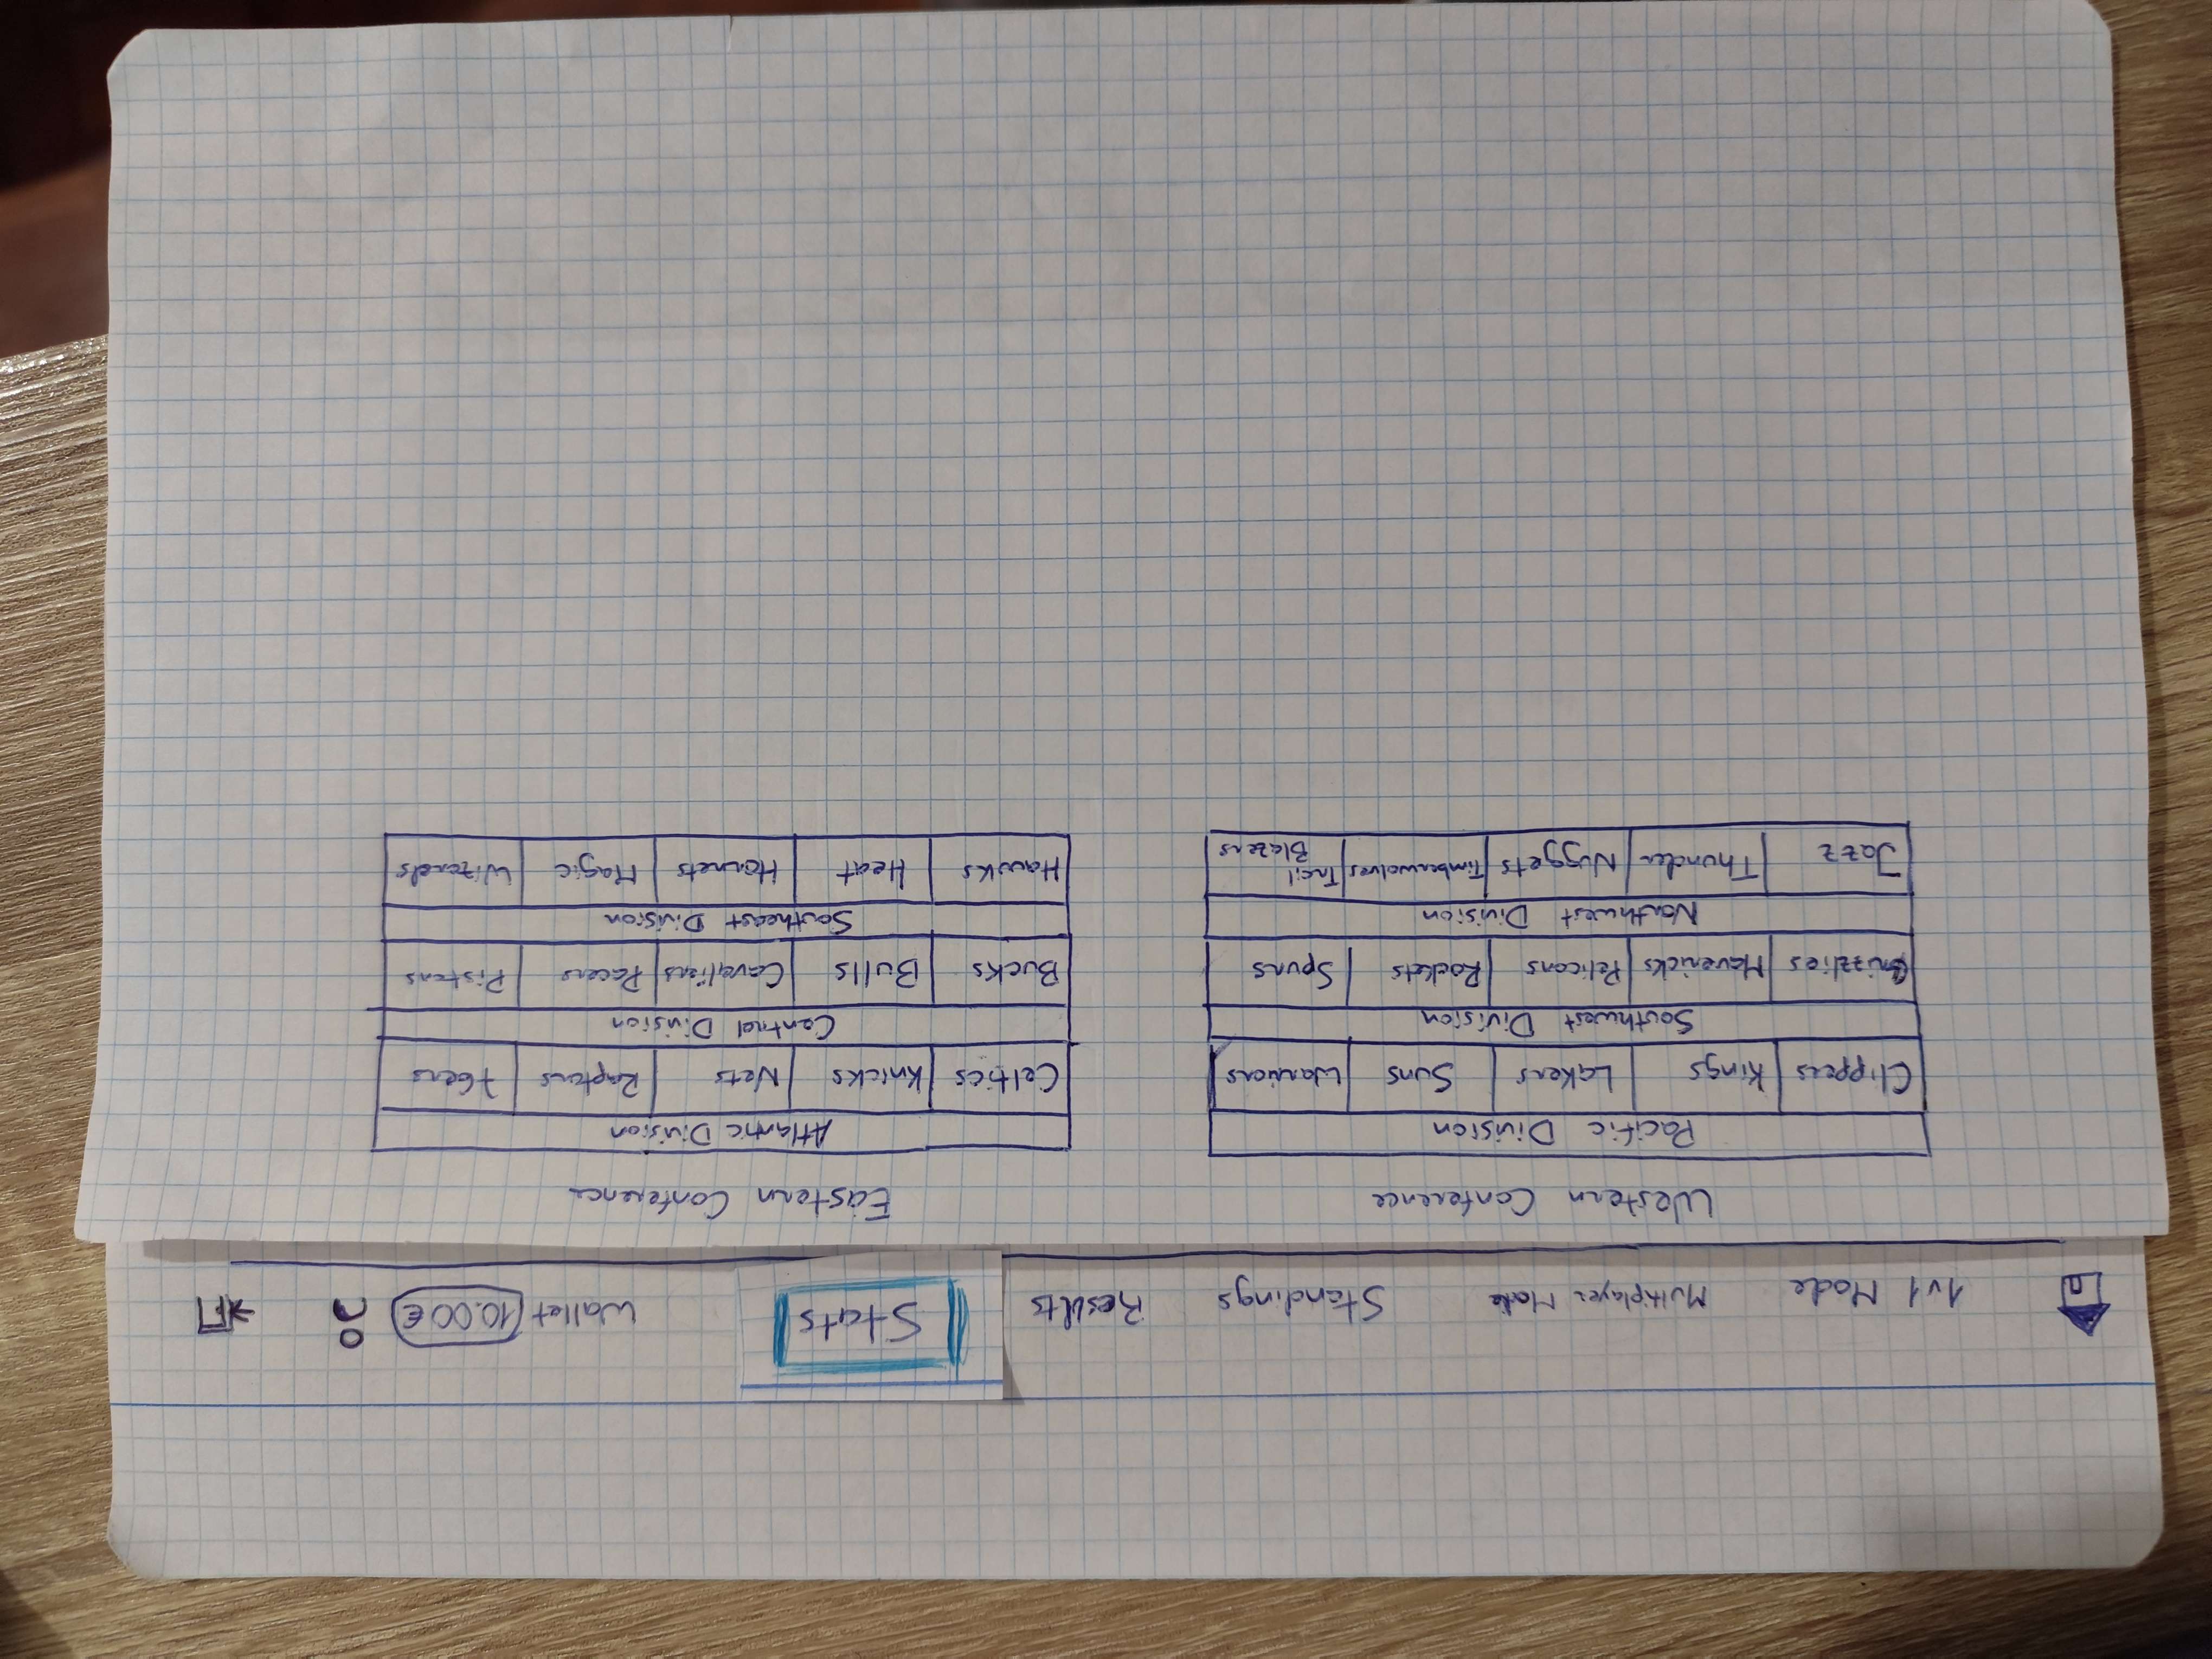 1v1 Mode Multiplayer Mode Standings Results Stats Wallet 10.00€
Western Conference
Pacific Division
Clippers Kings Lakers Suns Warriors
Southwest Division
Grizzlies Mavericks Pelicans Rockets Spurs
Northwest Division
Jazz Thunder Nuggets Timberwolves Trail Blazers
Eastern Conference
Atlantic Division
Celtics Knicks Nets Raptors 76ers
Central Division
Bucks Bulls Cavaliers Pacers Pistons
Southeast Division
Hawks Heat Hornets Magic Wizards